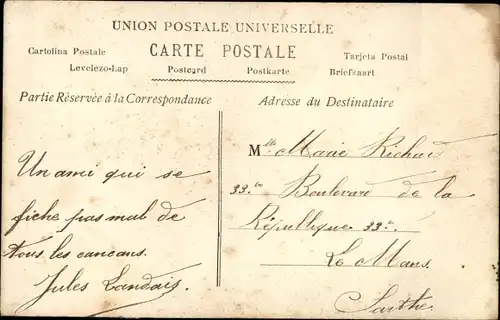 UNION POSTALE UNIVERSELLE
CARTE POSTALE
Cartolina Postale
Tarjeta Postal
Levelezo-Lap
Postcard
Postkarte
Briefsaart
Partie Réservée à la Correspondance
Adresse du Destinataire
Un ami qui se
fiche pas mal de
tous les cancans.
Jules Landais.
Mlle Marie Richard
33 ter Boulevard de la
République 33 ter
Le Mans.
Sarthe.